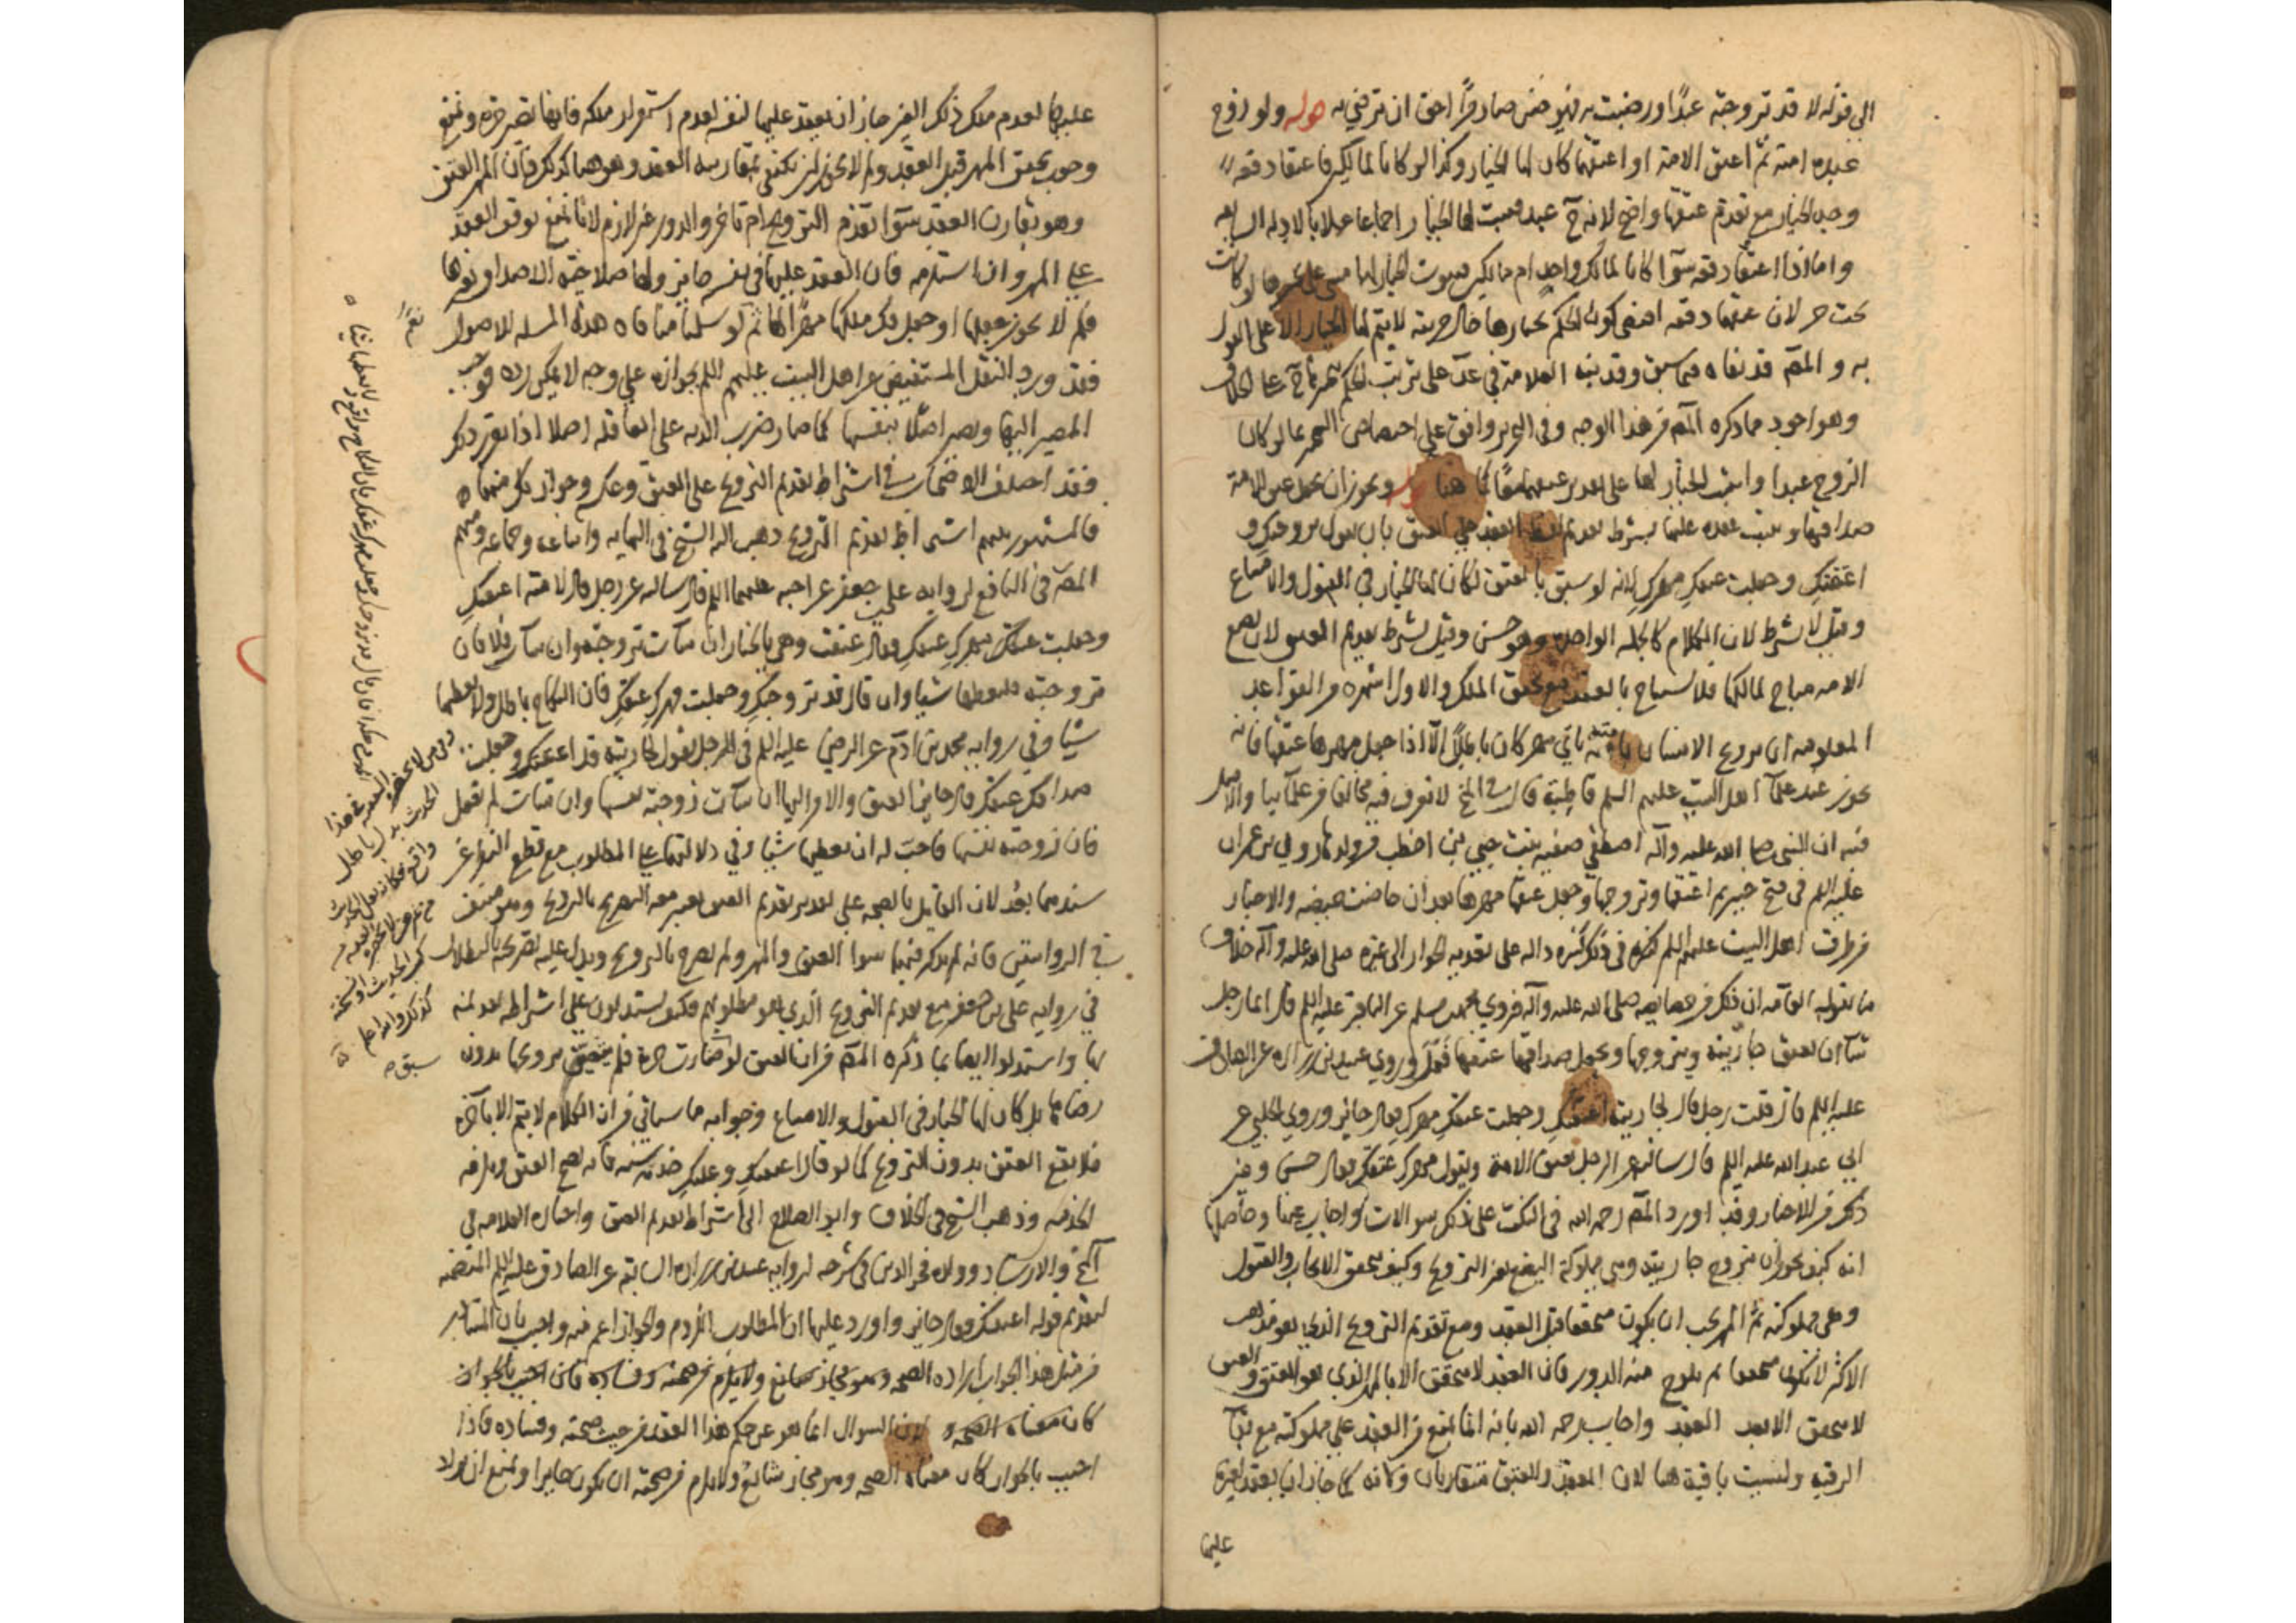 الى قوله لا قد تزوجته عبدًا ورضيت به فهو حين صار حرًّا احق ان ترضى به قوله ولو زوج
عبده امته ثم اعتق الامة او اعتقهما كان لها الخيار وكذا لو كانا لمالكين فاعتقا دفعة
وجه الخيار مع تقدم عتقها واضح لانه ح عبد فيثبت لها الخيار اجماعا عملا بالادلة السابقة
واما اذا اعتقا دفعة سوآ كانا لمالك واحد ام مالكين فثبوت الخيار لها مبنى على ثبوته لو كانت
تحت حر لان عتقهما دفعة اقتضى كون الحكم بخيارها حال حريته لا يتم لها الخيار الا على القول
به والمصّ قد نفاه فيما سبق وقد نبه العلامة في عد على ترتب الحكم
وهو اجود مما ذكره المص من هذا الوجه وفي التحرير وافق على اختصاص التخيير بما لو كان
الزوج عبدا واثبت الخيار لها على تقدير عتقهما معًا كما هنا قوله ويجوز ان يجعل عتق الامة
صداقها ويثبت عقده عليها بشرط تقديم لفظ العقد على العتق بان يقول تزوجتكِ و
اعتقتكِ وجعلت عتقكِ مهركِ لانه لو سبق بالعتق لكان لها الخيار في القبول والامتناع
وقيل لا يشترط لان الكلام كالجملة الواحدة وهو حسن وقيل يشترط تقديم العتق لان بضع
الامة مباح لمالكها فلا يستباح بالعقد مع تحقق الملك والاول اشهر من القواعد
المعلومة ان تزوج الانسان بامته باي مهر كان باطلًا الا اذا جعل مهرها عتقها فانه
يجوز عند علمآ اهل البيت عليهم السلم قاطبة قال في لا نعرف فيه مخالفا من علمآئنا والاصل
فيه ان النبي صلى الله عليه وآله اصطفى صفية بنت حيي بن اخطب من ولد هارون بن عمران
عليه السلم في فتح خيبر ثم اعتقها وتزوجها وجعل عتقها مهرها بعد ان حاضت حيضة والاخبار
من طرق اهل البيت عليهم السلم في ذلك كثيرة دالة على تعدية الجواز الى غيره صلى الله عليه وآله خلاف
ما يقوله العامة ان ذلك من خصايصه صلى الله عليه وآله فروى محمد بن مسلم عن الباقر عليه السلم قال ايما رجل
شآ ان يعتق جاريته ويتزوجها ويجعل صداقها عتقها فعل وروى عبيد بن زرارة عن الصادق
عليه السلم قال قلت رجل قال لجاريته اعتقتكِ وجعلت عتقكِ مهركِ فقال جائز وروى الحلبي عن
ابي عبد الله عليه السلم قال سالته عن الرجل يعتق الامة ويقول مهركِ عتقكِ فقال حسن وغير
ذلك من الاخبار وقد اورد المص رحمه الله في النكت على ذلك سوالات واجاب عنها وحاصلها
انه كيف يجوز ان يتزوج جاريته وهي مملوكة البضع بغير التزويج وكيف يتحقق الايجاب والقبول
وهي مملوكته ثم المهر يجب ان يكون متحققا قبل العقد ومع تقديم التزويج الذي هو مذهب
الاكثر لا يكون متحققا ثم يلوح منه الدور فان العقد لا يتحقق الا بالمهر الذي هو العتق والعتق
لا يتحقق الا بعد العقد واجاب رحمه الله بانه انما يمنع من العقد على مملوكته مع بقآ
الرقية وليست باقية هنا لان العقد والعتق متقاربان وكانه كما جاز ان يعقد لغيره
عليها
عليها لعدم ملك ذلك الغير جاز ان يعقد عليها لنفسه لعدم استقرار ملكه فانها تصير حرة ونمنع
وجوب تحقق المهر قبل العقد ولم لا يجوز ان يكتفى بمقارنته العقد وهو هنا كذلك فان المهر العتق
وهو يقارن العقد سوآ تقدم التزويج ام تاخر والدور غير لازم لانا نمنع توقف العقد
على المهر وان استلزمه فان العقد عليها في نفسه جايز ولها صلاحية الاصداق وغيرها
فلم لا يجوز جعلها او جعل فك ملكها مهرًا لها ثم لو سلمنا منافاة هذه المسله للاصول
فقد ورد النقل المستفيض عن اهل البيت عليهم السلم بجوازه على وجه لا يمكن رده فوجب
المصير اليها ويصير اصلًا بنفسها كما صار ضرب الدية على العاقلة اصلا اذا تقرر ذلك
فقد اختلف الاصحاب في اشتراط تقديم التزويج على العتق وعكسه وجواز كل منهما
فالمشهور بينهم اشتراط تقديم التزويج ذهب اليه الشيخ في النهاية واتباعه وجماعة ومنهم
المصّ في النافع لرواية علي بن جعفر عن اخيه عليهما السلم قال سالته عن رجل قال لامته اعتقتكِ
وجعلت عتقكِ مهركِ فقال عتقت وهي بالخيار ان شآت تزوجته وان شآت فلا فان
تزوجته فليعطها شيا وان قال قد تزوجتكِ وجعلت مهركِ عتقكِ فان النكاح باطل ولا يعطيها
شيا وفي رواية محمد بن آدم عن الرضا عليه السلم في الرجل يقول لجاريته قد اعتقتكِ وجعلت
صداقكِ عتقكِ قال جاز العتق والامر اليها ان شآت زوجته نفسها وان شآت لم تفعل
فان زوجته نفسها فاحب له ان يعطيها شيا وفي دلالتهما على المطلوب مع قطع النظر عن
سندهما بعد لان القايل بالصحة على تقدير تقديم العتق يعتبر معه التصريح بالتزويج وهو منتف
في الروايتين فانه لم يذكر فيهما سوا العتق والمهر ولم يصرح بالتزويج ويدل عليه تصريحه بالبطلان
في رواية علي بن جعفر مع تقديم التزويج الذي هو مطلوبهم فكيف يستدلون على اشتراط تقديمه
بها واستدلوا ايضا بما ذكره المص من ان العتق لو سبق صارت حرة فلم يتحقق تزويجها بدون
رضاها بل كان لها الخيار في القبول والامتناع وجوابه ما سياتي من ان الكلام لا يتم الا بآخره
فلا يقع العتق بدون التزويج كما لو قال اعتقتكِ وعليكِ خدمة سنة فانه يصح العتق ويلزمه
الخدمة وذهب الشيخ في الخلاف وابو الصلاح الى اشتراط تقديم العتق واختاره العلامة في
والارشاد وولده فخر الدين في شرحه لرواية عبيد بن زرارة السابقة عن الصادق عليه السلم المتضمنة
لتقديم قوله اعتقتكِ فقال جايز واورد عليها ان المطلوب اللزوم والجواز اعم منه واجيب بان المتبادر
من مثل هذا الجواب ارادة الصحة وهو مجاز شايع ولا يلزم من صحته وفساده فاذا اجيب بالجواز
كان معناه الصحة لان السوال انما هو عن حكم هذا العقد من حيث صحته وفساده فاذا
اجيب بالجواز كان معناه الصحة وهو مجاز شايع ولا يلزم من صحته ان يكون جايزا ونمنع ان يراد